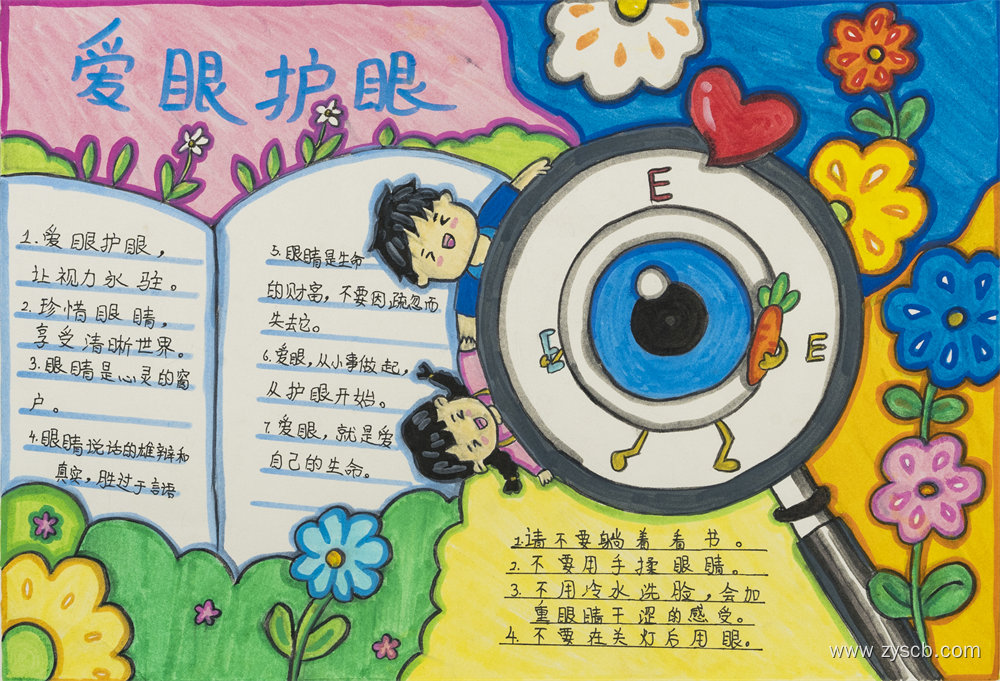 爱眼护眼
1.爱眼护眼，
让视力永驻。
2.珍惜眼睛，
享受清晰世界。
3.眼睛是心灵的窗
户。
4.眼睛说话的雄辩和
真实，胜过于言语
5.眼睛是生命
的财富，不要因疏忽而
失去它。
6.爱眼，从小事做起，
从护眼开始。
7.爱眼，就是爱
自己的生命。
E
E
E
1.请不要躺着看书。
2.不要用手揉眼睛。
3.不用冷水洗脸，会加
重眼睛干涩的感受。
4.不要在关灯后用眼。
www.zyscb.com